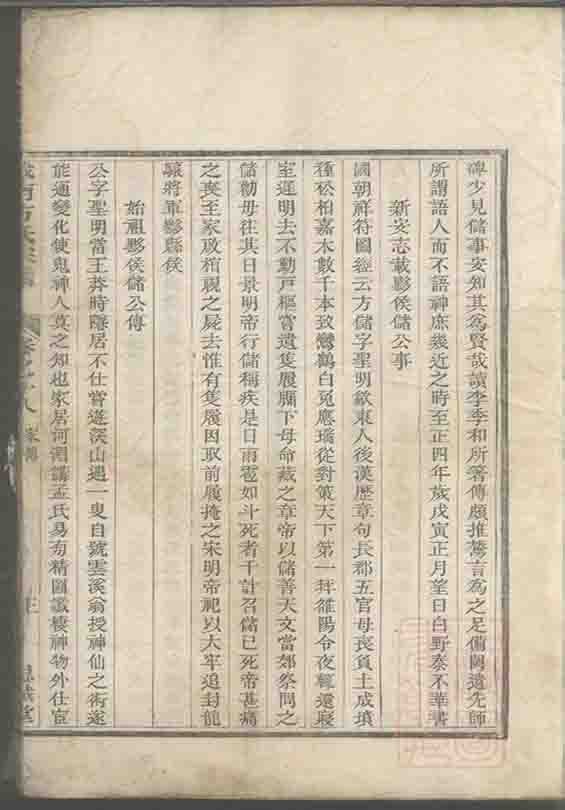 碑少見儲事安知其為賢哉讀李季和所著傳頗推驚言為之足備闕遺先師
所謂語人而不語神庶幾近之時至正四年歲戊寅正月望日白野泰不華書
新安志載黟侯儲公事
國朝祥符圖經云方儲字聖明歙東人後漢歷章句長郡五官母喪負土成墳
種松柏嘉木數千本致鸞鶴白兔應瑞從對策天下第一拜雒陽令夜輒還寢
室遲明去不動戶樞嘗遺隻履牖下母命藏之章帝以儲善天文當郊祭問之
儲勸毋往其日景明帝行儲稱疾是日雨雹如斗死者千計召儲已死帝甚痛
之喪至家啟棺視之屍去惟有隻履因取前履掩之宋明帝祀以大牢追封龍
驤將軍黟縣侯
始祖黟侯儲公傳
公字聖明當王莽時隱居不仕嘗遊深山遇一叟自號雲溪翁授神仙之術遂
能通變化使鬼神人莫之知也家居河澗講孟氏易旁精圖讖棲神物外仕宦
卷之八 家傳